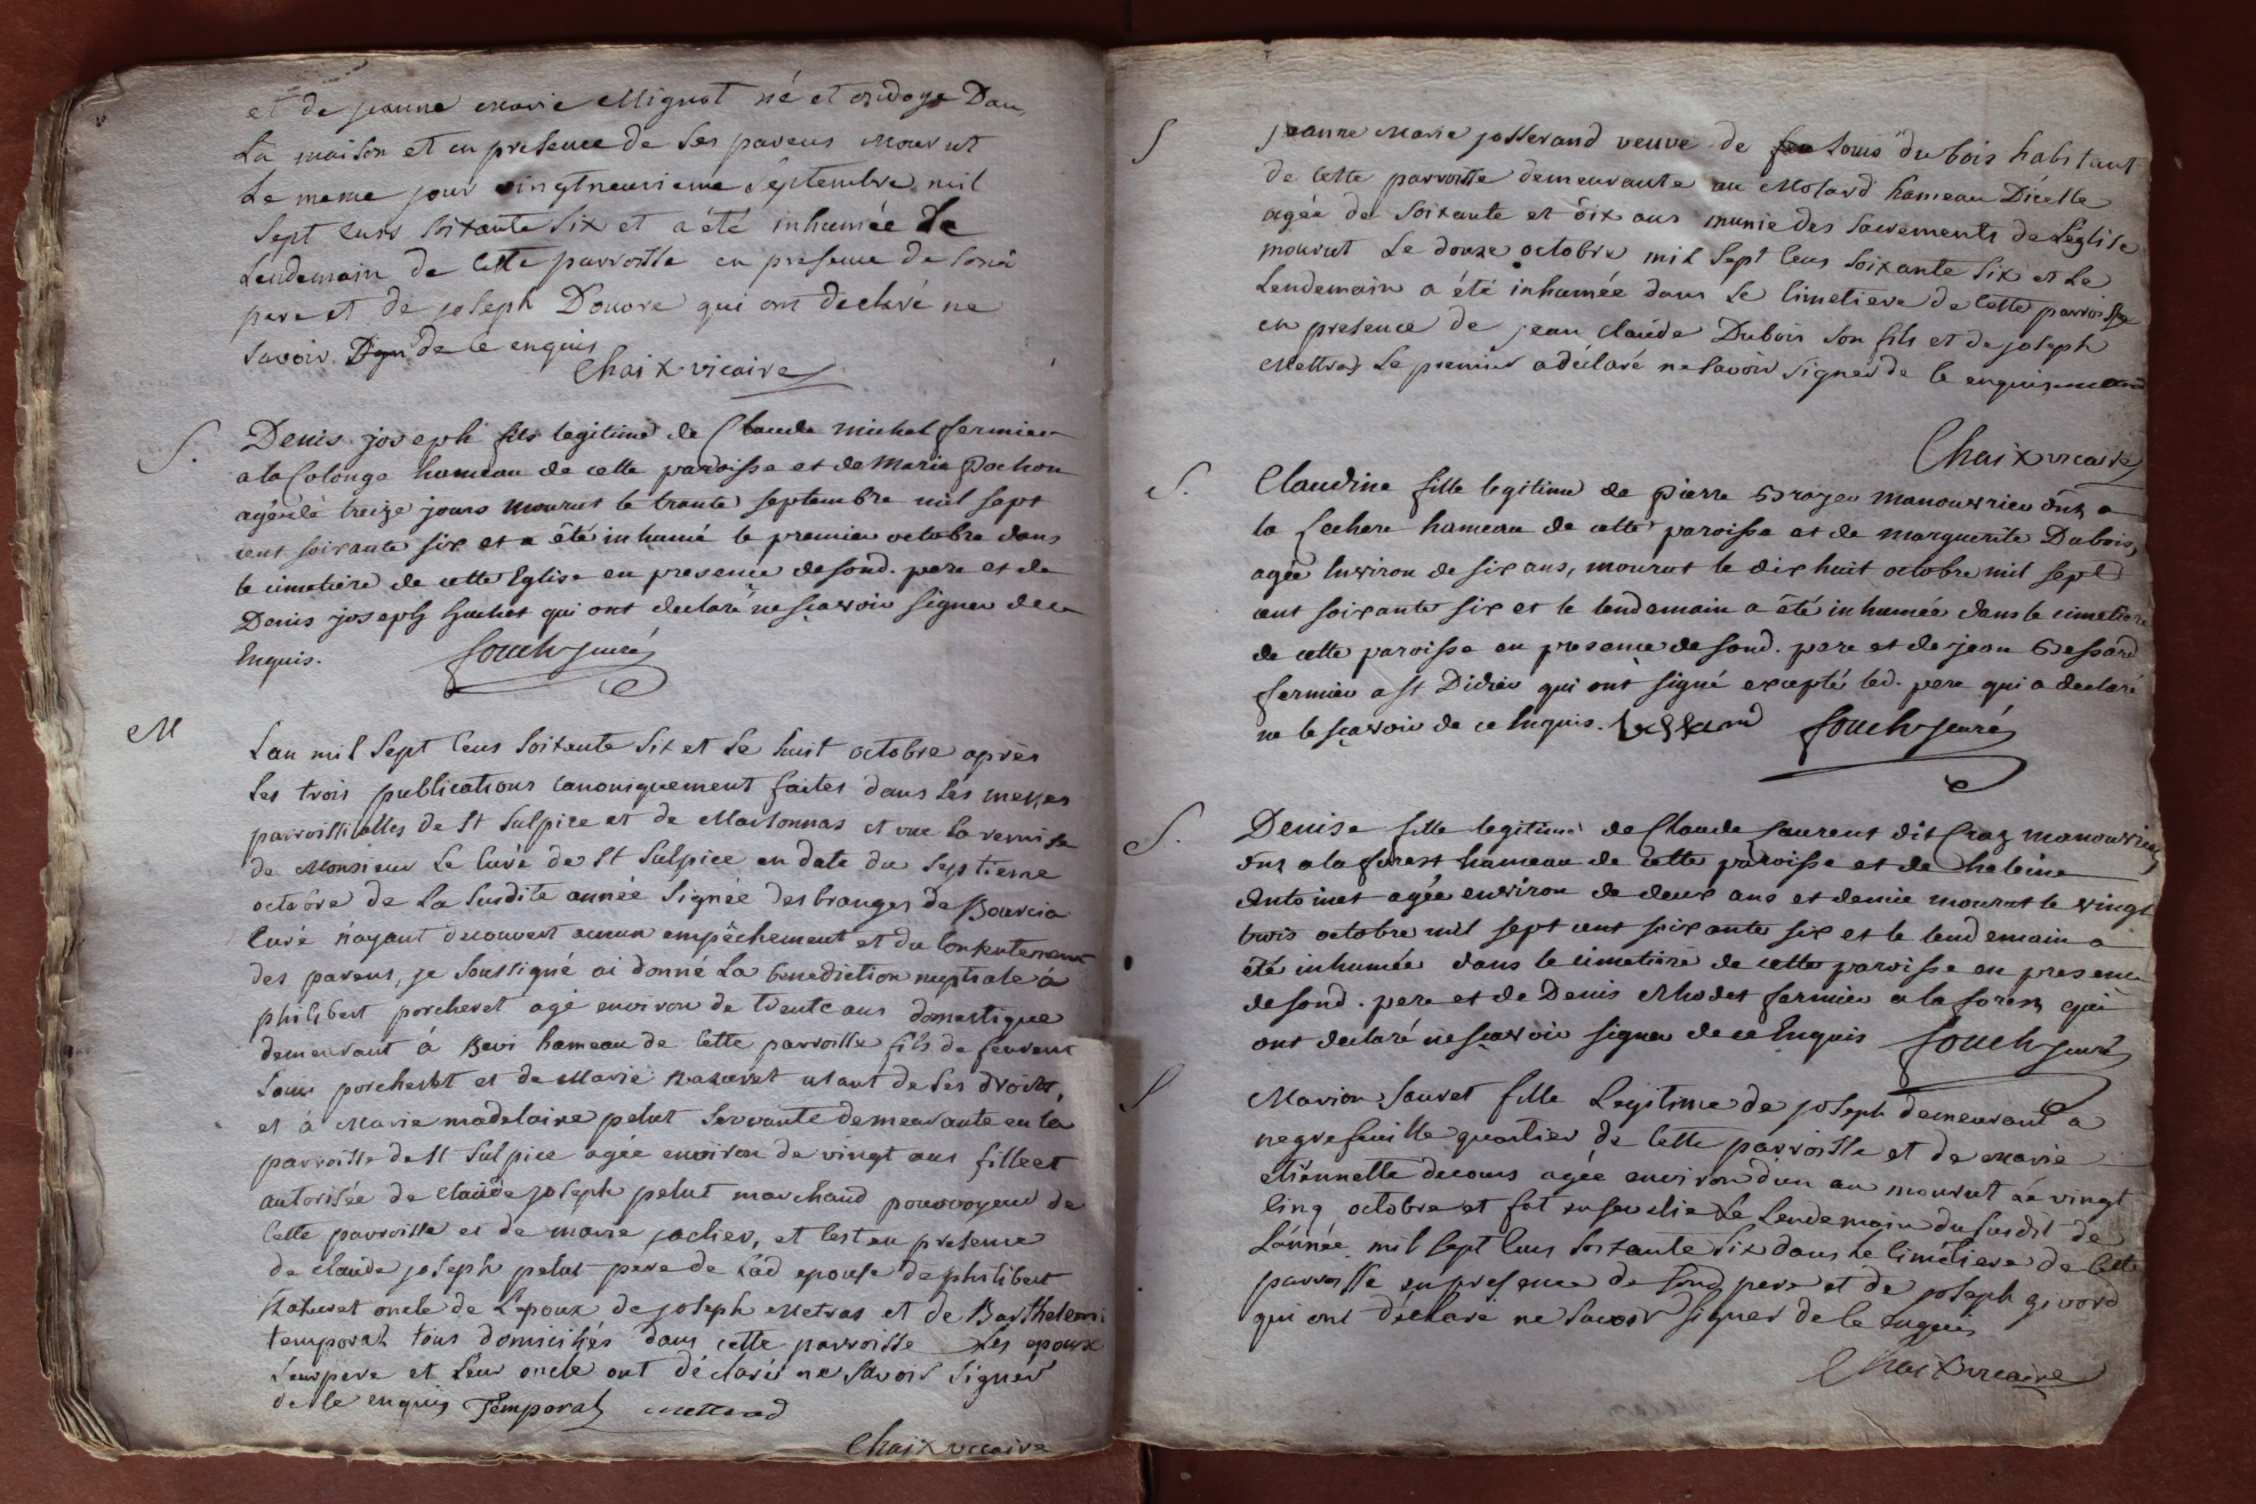 et de jeanne marie Mignot né et ondoyé Dans
La maison et en presence de ses parens mourut
Le meme jour vingtneuvieme Septembre mil
Sept cens soixante Six et a été inhumée le
Lendemain de cette parroisse en presence de
pere et de joseph Douvre qui ont declaré ne
savoir de ce enquis
Chaix vicaire
S. Denis joseph fils legitime de Claude michel fermier
a la Colonge hameau de cette paroisse et de Marie Pochon
agé de treize jours mourut le trante septembre mil sept
cent soixante six et a été inhumé le premier octobre dans
le cimetiere de cette Eglise en presence de sond. pere et de
Denis joseph Guchet qui ont declaré ne sçavoir signer de ce
Enquis. curé
M
Lan mil Sept Cens soixante Six et Le huit octobre après
Les trois publications canoniquement faites dans Les messes
parroissialles de St Sulpice et de Marsonnas et vue la remise
de Monsieur Le Curé de St Sulpice en date du Septieme
octobre de La susdite année Signée des branges de Bourcia
Curé n'ayant decouvert aucun empêchement et du Consentement
des parens, je soussigné ai donné La benediction nuptiale à
philibert porcheret agé environ de trente ans domestique
demeurant à Bevi hameau de cette parroisse fils de
Louis porcheret et de Marie Naturet usant de Ses droits,
et à Marie madelaine pelut servante demeurante en la
parroisse de St Sulpice agée environ de vingt ans fille et
autorisée de Claude joseph pelut marchand pourvoyeur de
Cette parroisse et de marie jaclier, et C'est en presence
de Claude joseph pelut pere de Lad epouse de philibert
Naturet oncle de L'epoux de joseph Metras et de Barthelemi
temporal tous domiciliés dans cette parroisse Les epoux
Leur pere et Leur oncle ont déclarés ne Savoir Signer
de ce enquis Temporal mettrad
Chaix vicaire
S jeanne Marie josserand veuve de feu Louis dubois habitant
de Cette parroisse demeurante au Molard hameau D'icelle
agée de Soixante et dix ans munie des sacrements de L'eglise
mourut Le douze octobre mil Sept Cens Soixante Six et Le
Lendemain a été inhumée dans Le Cimetiere de Cette parroisse
en presence de jean Claude Dubois son fils et de joseph
Mettras Le premier a déclaré ne savoir Signer de ce enquis
Chaix vicaire
S. Claudine fille legitime de Pierre Broyer manouvrier dnt a
la Lechere hameau de cette paroisse et de marguerite Dubois,
agée Environ de six ans, mourut le dix huit octobre mil sept
cent soixante six et le lendemain a été inhumée dans le cimetiere
de cette paroisse en presence de sond. pere et de jean Bessard
fermier a St Didier qui ont signé excepté led. pere qui a declaré
ne le sçavoir de ce Enquis. curé
S. Denise fille legitime de Claude Laurent dit Craz manouvrier
dnt a la forest hameau de cette paroisse et de heleine
Antoinet agée environ de deux ans et demie mourut le vingt
trois octobre mil sept cent soixante six et le lendemain a
été inhumée dans le cimetiere de cette paroisse en presence
de sond. pere et de Denis Rhodet fermier a la forest qui
ont declaré ne sçavoir signer de ce Enquis curé
S Marion Sauvet fille Legitime de joseph demeurant a
negrefeuille quartier de Cette parroisse et de marie
etiennette decours agée environ d'un an mourut Le vingt
Cinq octobre et fut ensevelie Le Lendemain du susdit de
L'année mil Sept Cens soixante Six dans Le Cimetiere de Cette
parroisse en presence de Sond pere et de joseph givord
qui ont déclaré ne savoir signer de ce enquis
Chaix vicaire